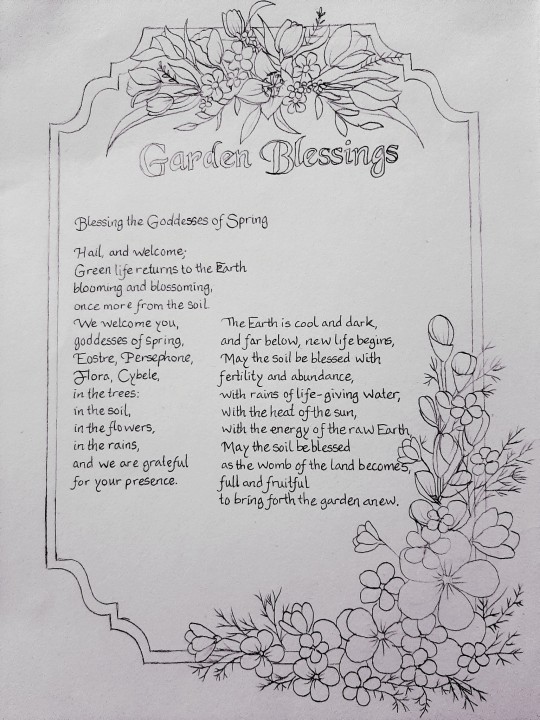 Garden Blessings
Blessing the Goddesses of Spring
Hail, and welcome;
Green life returns to the Earth
blooming and blossoming,
once more from the soil
We welcome you,
goddesses of spring,
Eostre, Persephone,
Flora, Cybele,
in the trees:
in the soil,
in the flowers,
in the rains,
and we are grateful
for your presence.
The Earth is cool and dark,
and far below, new life begins,
May the soil be blessed with
fertility and abundance,
with rains of life-giving water,
with the heat of the sun,
with the energy of the raw Earth
May the soil be blessed
as the womb of the land becomes,
full and fruitful
to bring forth the garden anew.